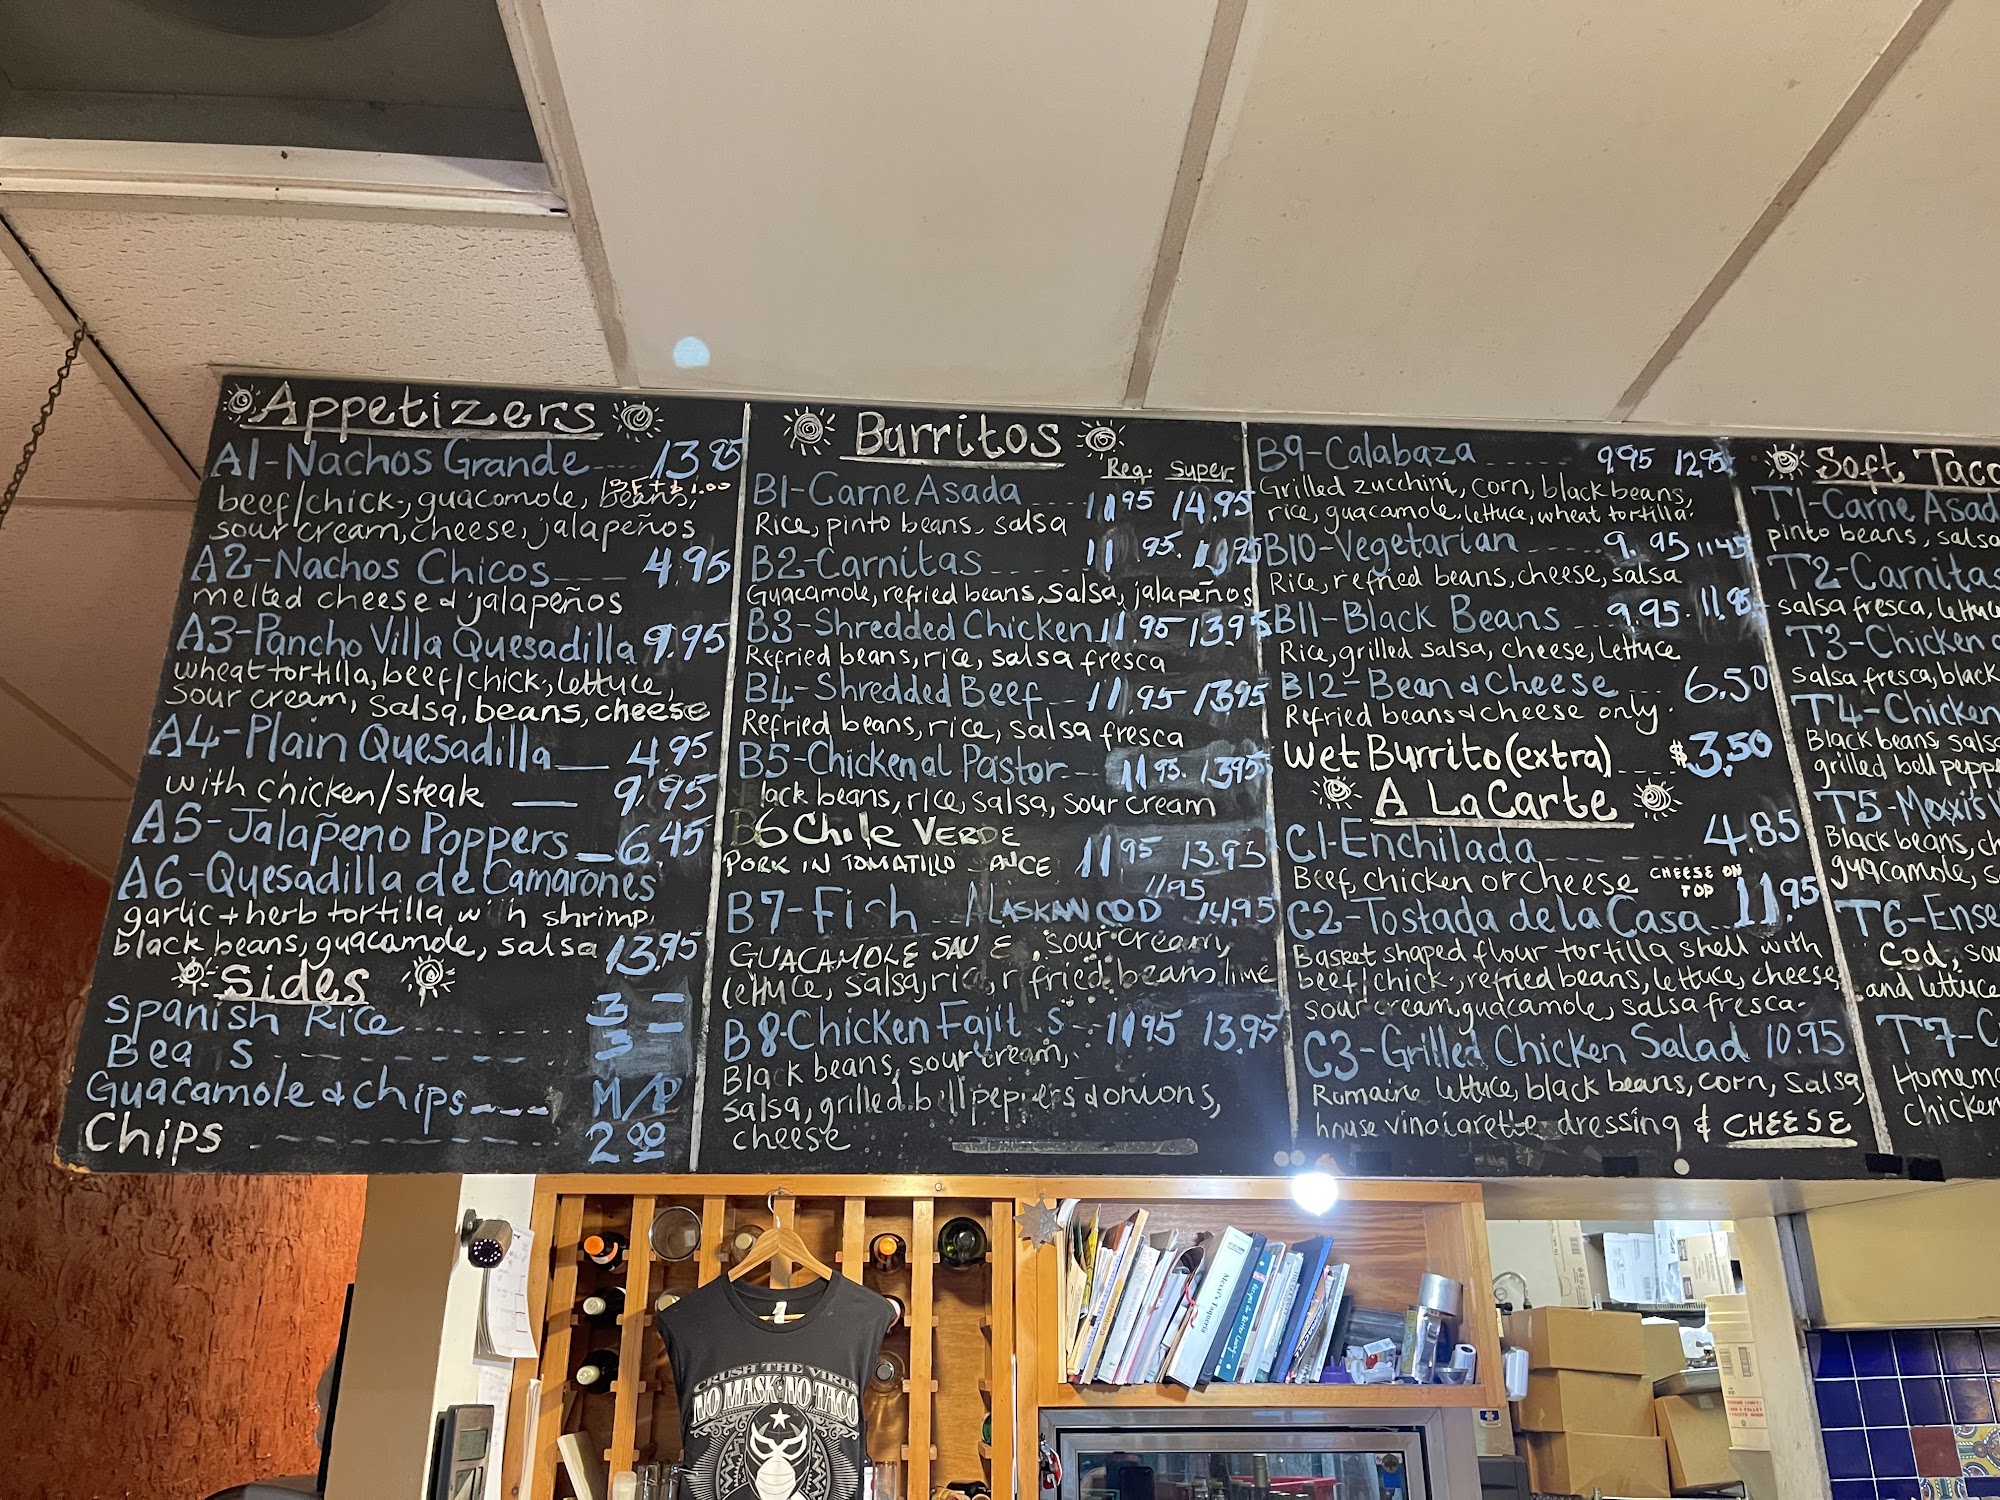 Appetizers
A1-Nachos Grande---- 13.95
beef/chick., guacamole, beans,
BF + $1.00
sour cream, cheese, jalapeños
A2-Nachos Chicos--- 4.95
melted cheese & jalapeños
A3-Pancho Villa Quesadilla 9.95
wheat tortilla, beef/chick., lettuce,
sour cream, salsa, beans, cheese
A4-Plain Quesadilla__ 4.95
with chicken/steak __ 9.95
A5-Jalapeno Poppers_ 6.45
A6-Quesadilla de Camarones
garlic + herb tortilla wi h shrimp,
black beans, guacamole, salsa 13.95
Sides
Spanish Rice ........ 3 -
Bea s - - - - - - - 3 -
Guacamole & chips---- M/P
Chips - - - - - - - 2.00
Burritos
Reg. Super
B1-Carne Asada ---- 11.95 14.95
Rice, pinto beans, salsa
B2-Carnitas ------ 11.95. 13.95
Guacamole, refried beans, salsa, jalapeños
B3-Shredded Chicken 11.95 13.95
Refried beans, rice, salsa fresca
B4-Shredded Beef --- 11.95 13.95
Refried beans, rice, salsa fresca
B5-Chicken al Pastor--- 11.95. 13.95
lack beans, rice, salsa, sour cream
B6 Chile VERDE
PORK IN TOMATILLO AUCE 11.95 13.95
B7-Fish ALASKAN COD 11.95 14.95
GUACAMOLE SAU E, sour cream,
lettuce, salsa, ric , r fried beans, lime
B8-Chicken Fajit s--- 11.95 13.95
Black beans, sour cream,
salsa, grilled bell peppers & onions,
cheese
B9-Calabaza ----- 9.95 12.95
Grilled zucchini, corn, black beans,
rice, guacamole, lettuce, wheat tortilla.
B10-Vegetarian ---- 9.95 11.45
Rice, refried beans, cheese, salsa
B11-Black Beans --- 9.95. 11.95
Rice, grilled salsa, cheese, lettuce
B12-Bean & Cheese --- 6.50
Refried beans & cheese only.
Wet Burrito (extra) ---- $3.50
A La Carte
C1-Enchilada ------ 4.85
Beef, chicken or cheese CHEESE ON TOP
C2-Tostada de la Casa-- 11.95
Basket shaped flour tortilla shell with
beef/chick., refried beans, lettuce, cheese,
sour cream, guacamole, salsa fresca.
C3-Grilled Chicken Salad 10.95
Romaine lettuce, black beans, corn, salsa,
house vinaigrette dressing & CHEESE
Soft Taco
T1-Carne Asad
pinto beans, salsa
T2-Carnitas
salsa fresca, lettuc
T3-Chicken
salsa fresca, black
T4-Chicken
Black beans, salsa
grilled bell pepp
T5-Mexxi's
Black beans, ch
guacamole, s
T6-Ense
Cod, sou
and lettuce
T7-C
Homema
chicken
CRUSH THE VIRUS
NO MASK·NO TACO